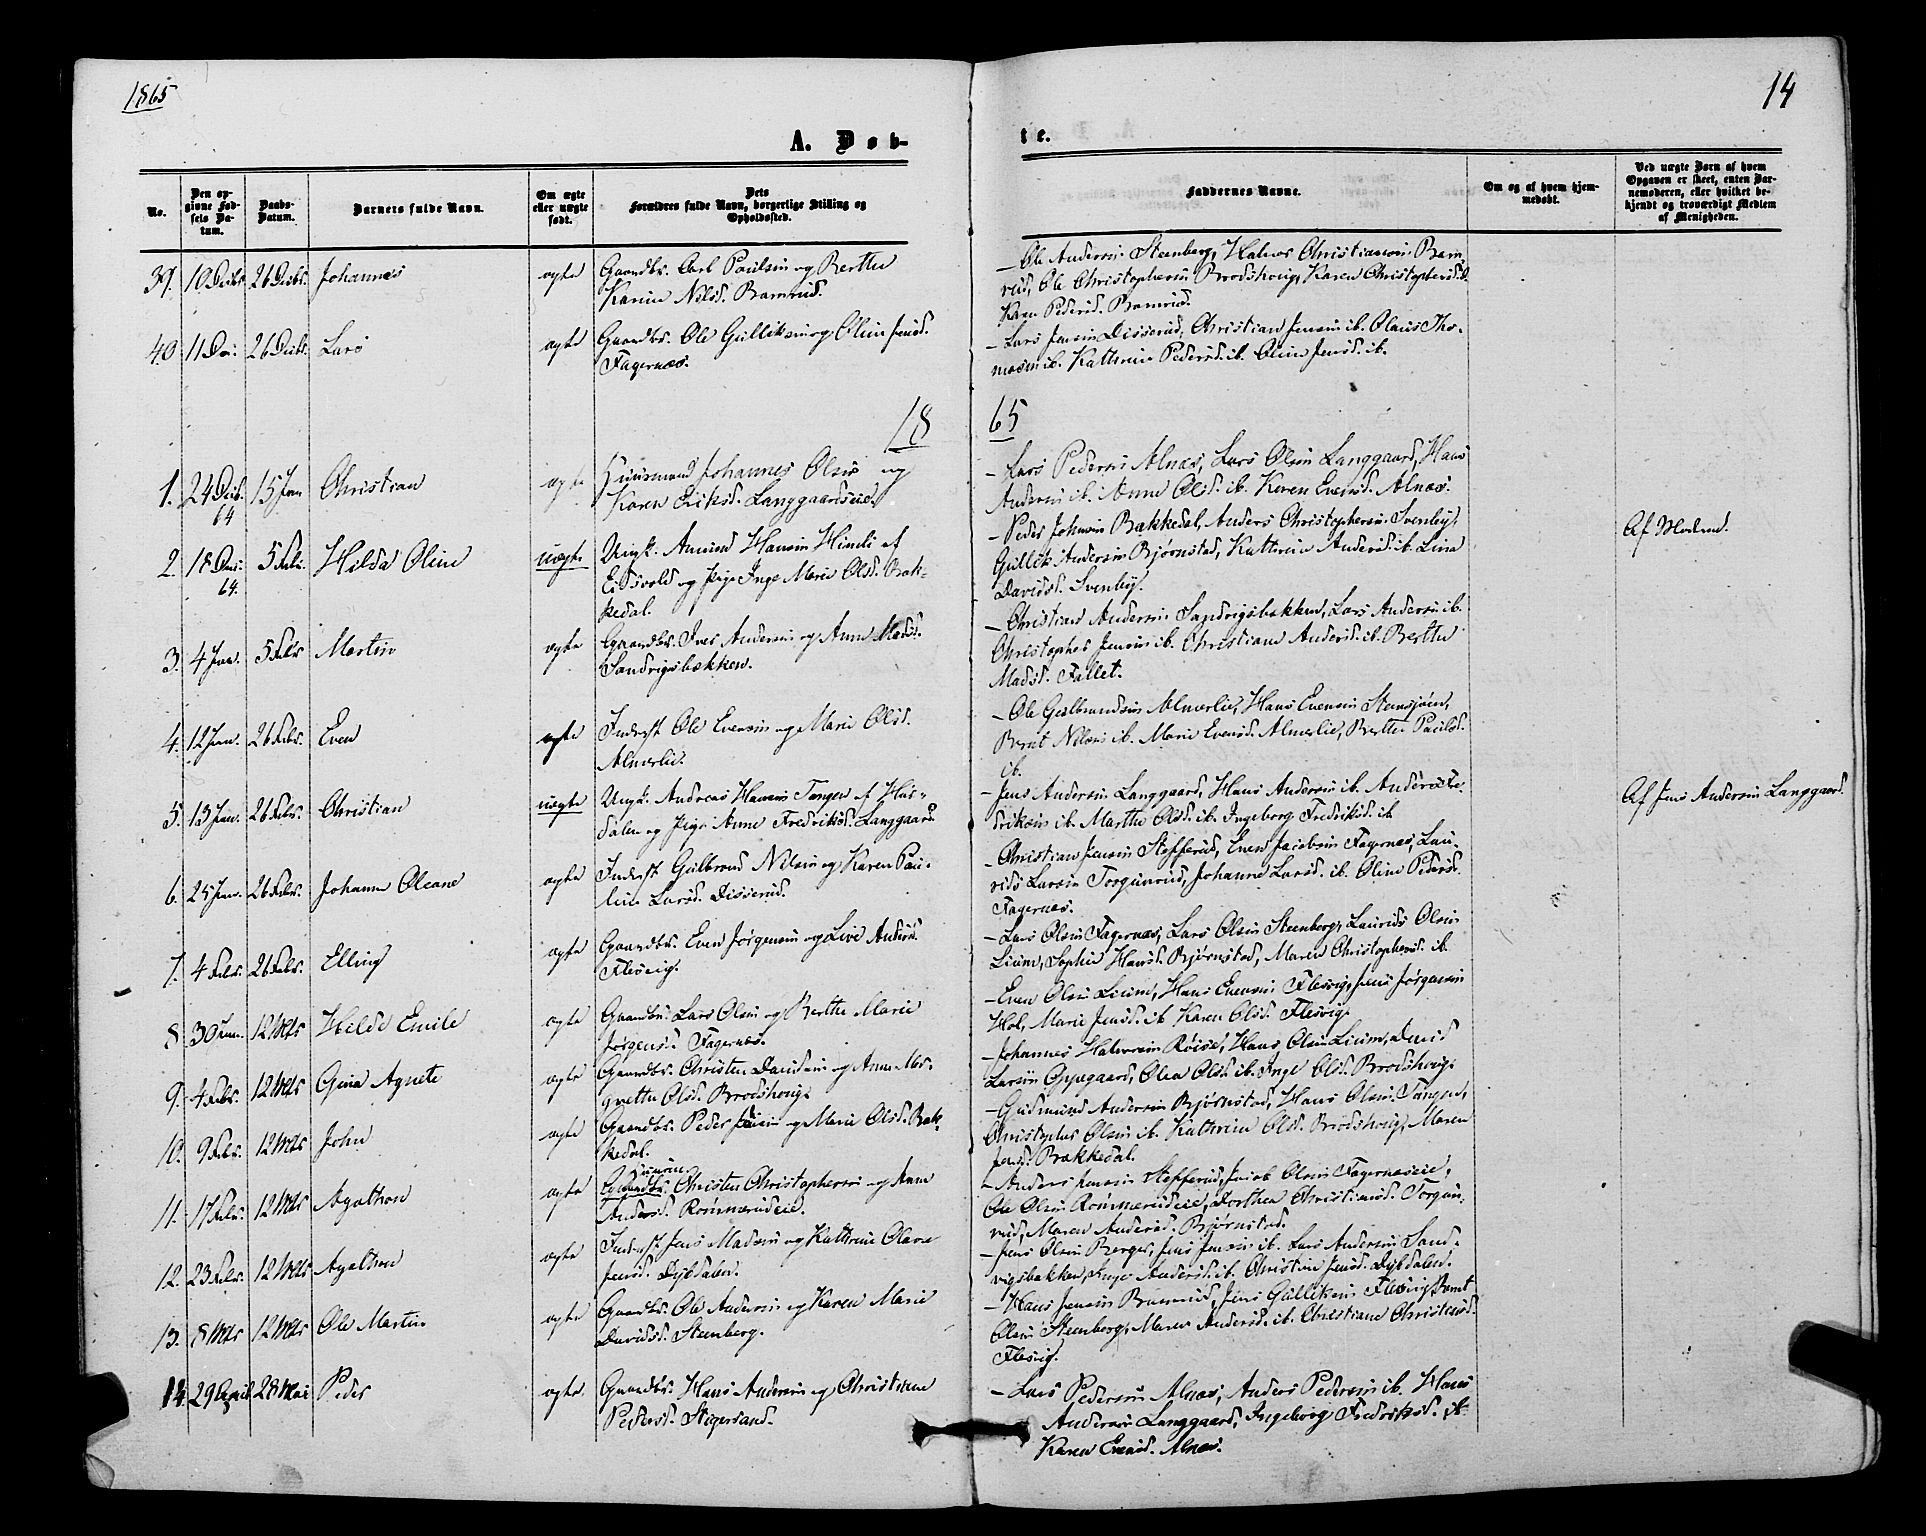 1865
14
A. Døb-
te.
No.
Den op-
givne Fød-
sels Da-
tum.
Daabs-
Datum.
Barnets fulde Navn.
Om ægte
eller uægte
født.
Dets
Forældres fulde Navn, borgerlige Stilling og
Opholdssted.
Faddernes Navne.
Om og af hvem hjem-
medøbt.
Ved uægte Børn af hvem
Opgaven er skeet, enten Bar-
nemoderen, eller hvilket be-
kjendt og troværdigt Medlem
af Menigheden.
39. 10 Decbr 26 Decbr. Johannes ægte Gaardbr. Carl Paulsen og Berthe
Karine Nilsd. Bamrud.
– Ole Andersen Steenberg, Halvor Christiansen Bam-
rud, Ole Christophersen Brodshoug, Karen Christophersd.
Karen Pedersd. Bamrud.
40 11 Dec. 26 Decbr. Lars ægte Gaardbr. Ole Gulliksen og Oline Jensd.
Fagernæs.
– Lars Jensen Disserud, Christian Jensen ib. Olaus Tho-
masen ib. Kathrine Pedersd. ib. Oline Jensd. ib.
18 65
1. 24 Decb. 64 15 Jan Christian ægte Huusmand Johannes Olsen og
Karen Eriksd. Langgaardseie.
– Lars Pedersen Alnæs, Lars Olsen Langgaard, Hans
Andersen ib. Anne Olsd. ib. Karen Evensd. Alnæs.
2. 18 Dec. 64. 5 Febr. Hilda Oline uægte Ungk. Amund Hansen Himle af
Eidsvold og Pige Inge Marie Olsd. Bak-
kedal.
– Peder Johnsen Bakkedal, Anders Christophersen Svenby,
Gullik Andersen Bjørnstad, Kathrine Andersd. ib. Lina
Davidsd. Svenby.
Af Moderen.
3. 4 Jan. 5 Febr Martin ægte Gaardbr. Iver Andersen og Anne Madsd.
Sandvigsbakken.
– Christian Andersen Sandvigsbakken, Lars Andersen ib.
Christopher Jensen ib. Christiane Andersd. ib. Berthe
Madsd. Fallet.
4. 12 Jan. 26 Febr. Even ægte Inderst Ole Evensen og Marie Olsd.
Almerlie.
– Ole Gulbrandsen Almerlie, Hans Evensen Steensjøen,
Bernt Nilsen ib. Marie Evensd. Almerlie, Berthe Paulsd.
ib.
5. 13 Jan. 26 Febr. Christian uægte Ungk. Andreas Hansen Tangen af Hur-
dalen og Pige Anne Fredriksd. Langgaard
– Jens Andersen Langgaard, Hans Andersen ib. Anders Fre-
driksen ib. Marthe Olsd. ib. Ingeborg Fredriksd. ib
Af Jens Andersen Langgaard.
6. 25 Jan. 26 Febr. Johanne Oleane ægte Inderst Gulbrand Nilsen og Karen Pau-
line Larsd. Disserud.
– Christian Jensen Stefferud, Even Jacobsen Fagernæs, Lau-
rids Larsen Torgunrud, Johanne Larsd. ib. Oline Pedersd.
Fagernæs.
7. 4 Febr. 26 Febr. Elling ægte Gaardbr. Even Jørgensen og Live Andersd.
Flesvig.
– Lars Olsen Fagernæs, Lars Olsen Steenberg, Laurids Olsen
Lium, Sophie Hansd. Bjørnstad, Maren Christophersd. ib.
8 30 Jan. 12 Mts Helde Emile ægte Gaardbr. Lars Olsen og Berthe Marie
Jørgensd. Fagernæs.
– Even Olsen Lium, Hans Evensen Flesvig, Jens Jørgensen
Hol, Marie Jensd. ib Karen Olsd. Flesvig.
9. 4 Febr. 12 Mts Gina Agnete ægte Gaardbr. Christen Davidsen og Anne Mar-
grethe Olsd. Brodshoug.
– Johannes Halvorsen Røise, Hans Olsen Lium, David
Larsen Gyegaard, Olea Olsd. ib. Inge Olsd. Brodshoug.
10. 9 Febr. 12 Mts John ægte Gaardbr. Peder Jensen og Marie Olsd. Bak-
kedal.
– Gudmund Andersen Bjørnstad, Hans Olsen Tangen,
Christopher Olsen ib. Kathrine Olsd. Brodshoug, Maren
Jensd. Bakkedal.
11. 17 Febr. 12 Mts Agathon ægte Gaardbr. Christen Christophersen og Anne
Andersd. Rønnerudeie.
– Anders Jensen Stefferud, Jacob Olsen Fagernæseie,
Ole Olsen Rønnerudeie, Dorthea Christiansd. Torgun-
rud, Maren Andersd. Bjørnstad.
12. 23 Febr. 12 Mts Agathon ægte Inderst Jens Madsen og Kathrine Olava
Jensd. Dybdalen.
– Jens Olsen Berger, Jens Jensen ib. Lars Andersen Sand-
vigsbakken, Inger Andersd. ib. Christine Jensd. Dybdalen.
13. 8 Mts 12 Mts Ole Martin ægte Gaardbr. Ole Andersen og Karen Marie
Davidsd. Steenberg.
– Hans Jensen Bamrud, Jens Gulliksen Flesvig, Bernt
Olsen Steenberg, Maren Andersd. ib. Christiane Christensd.
Flesvig.
14 29 April 28 Mai Peder ægte Gaardbr. Hans Andersen og Christiane
Pedersd. Stigersand.
– Lars Pedersen Alnæs, Anders Pedersen ib. Hans
Andersen Langgaard, Ingeborg Fredriksd. ib
Karen Evensd. Alnæs.